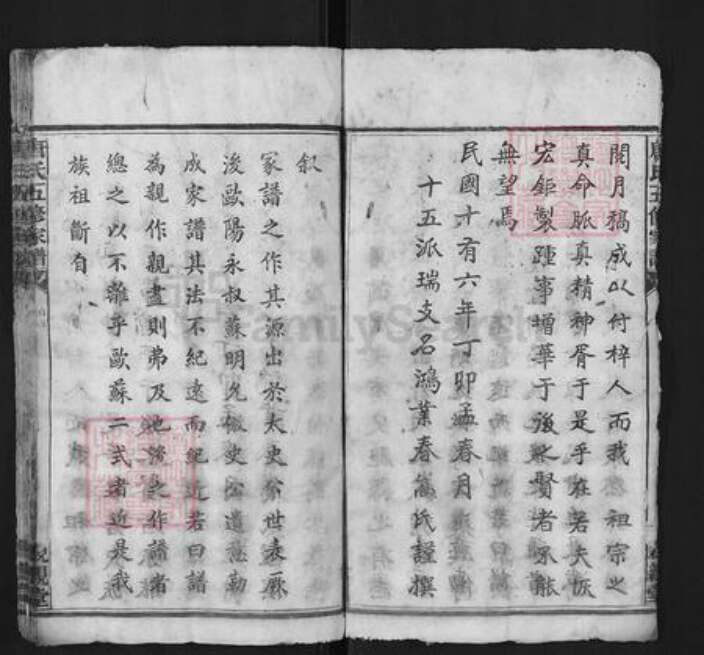 閱月稿成以付梓人而我祖宗之
真命脈真精神胥于是乎在若夫恢
宏鉅製踵事增華于後之賢者不能
無望焉
民國十有六年丁卯孟春月
十五派瑞支名鴻業春嵩氏謹撰
敘
家譜之作其源出於太史公世表厥
後歐陽永叔蘇明允倣史公遺意勒
成家譜其法不紀遠而紀近若曰譜
為親作親盡則弗及也後之作譜者
總之以不離乎歐蘇二式者近是我
族祖斷自
唐氏五修家譜
敦親堂
FamilySearch